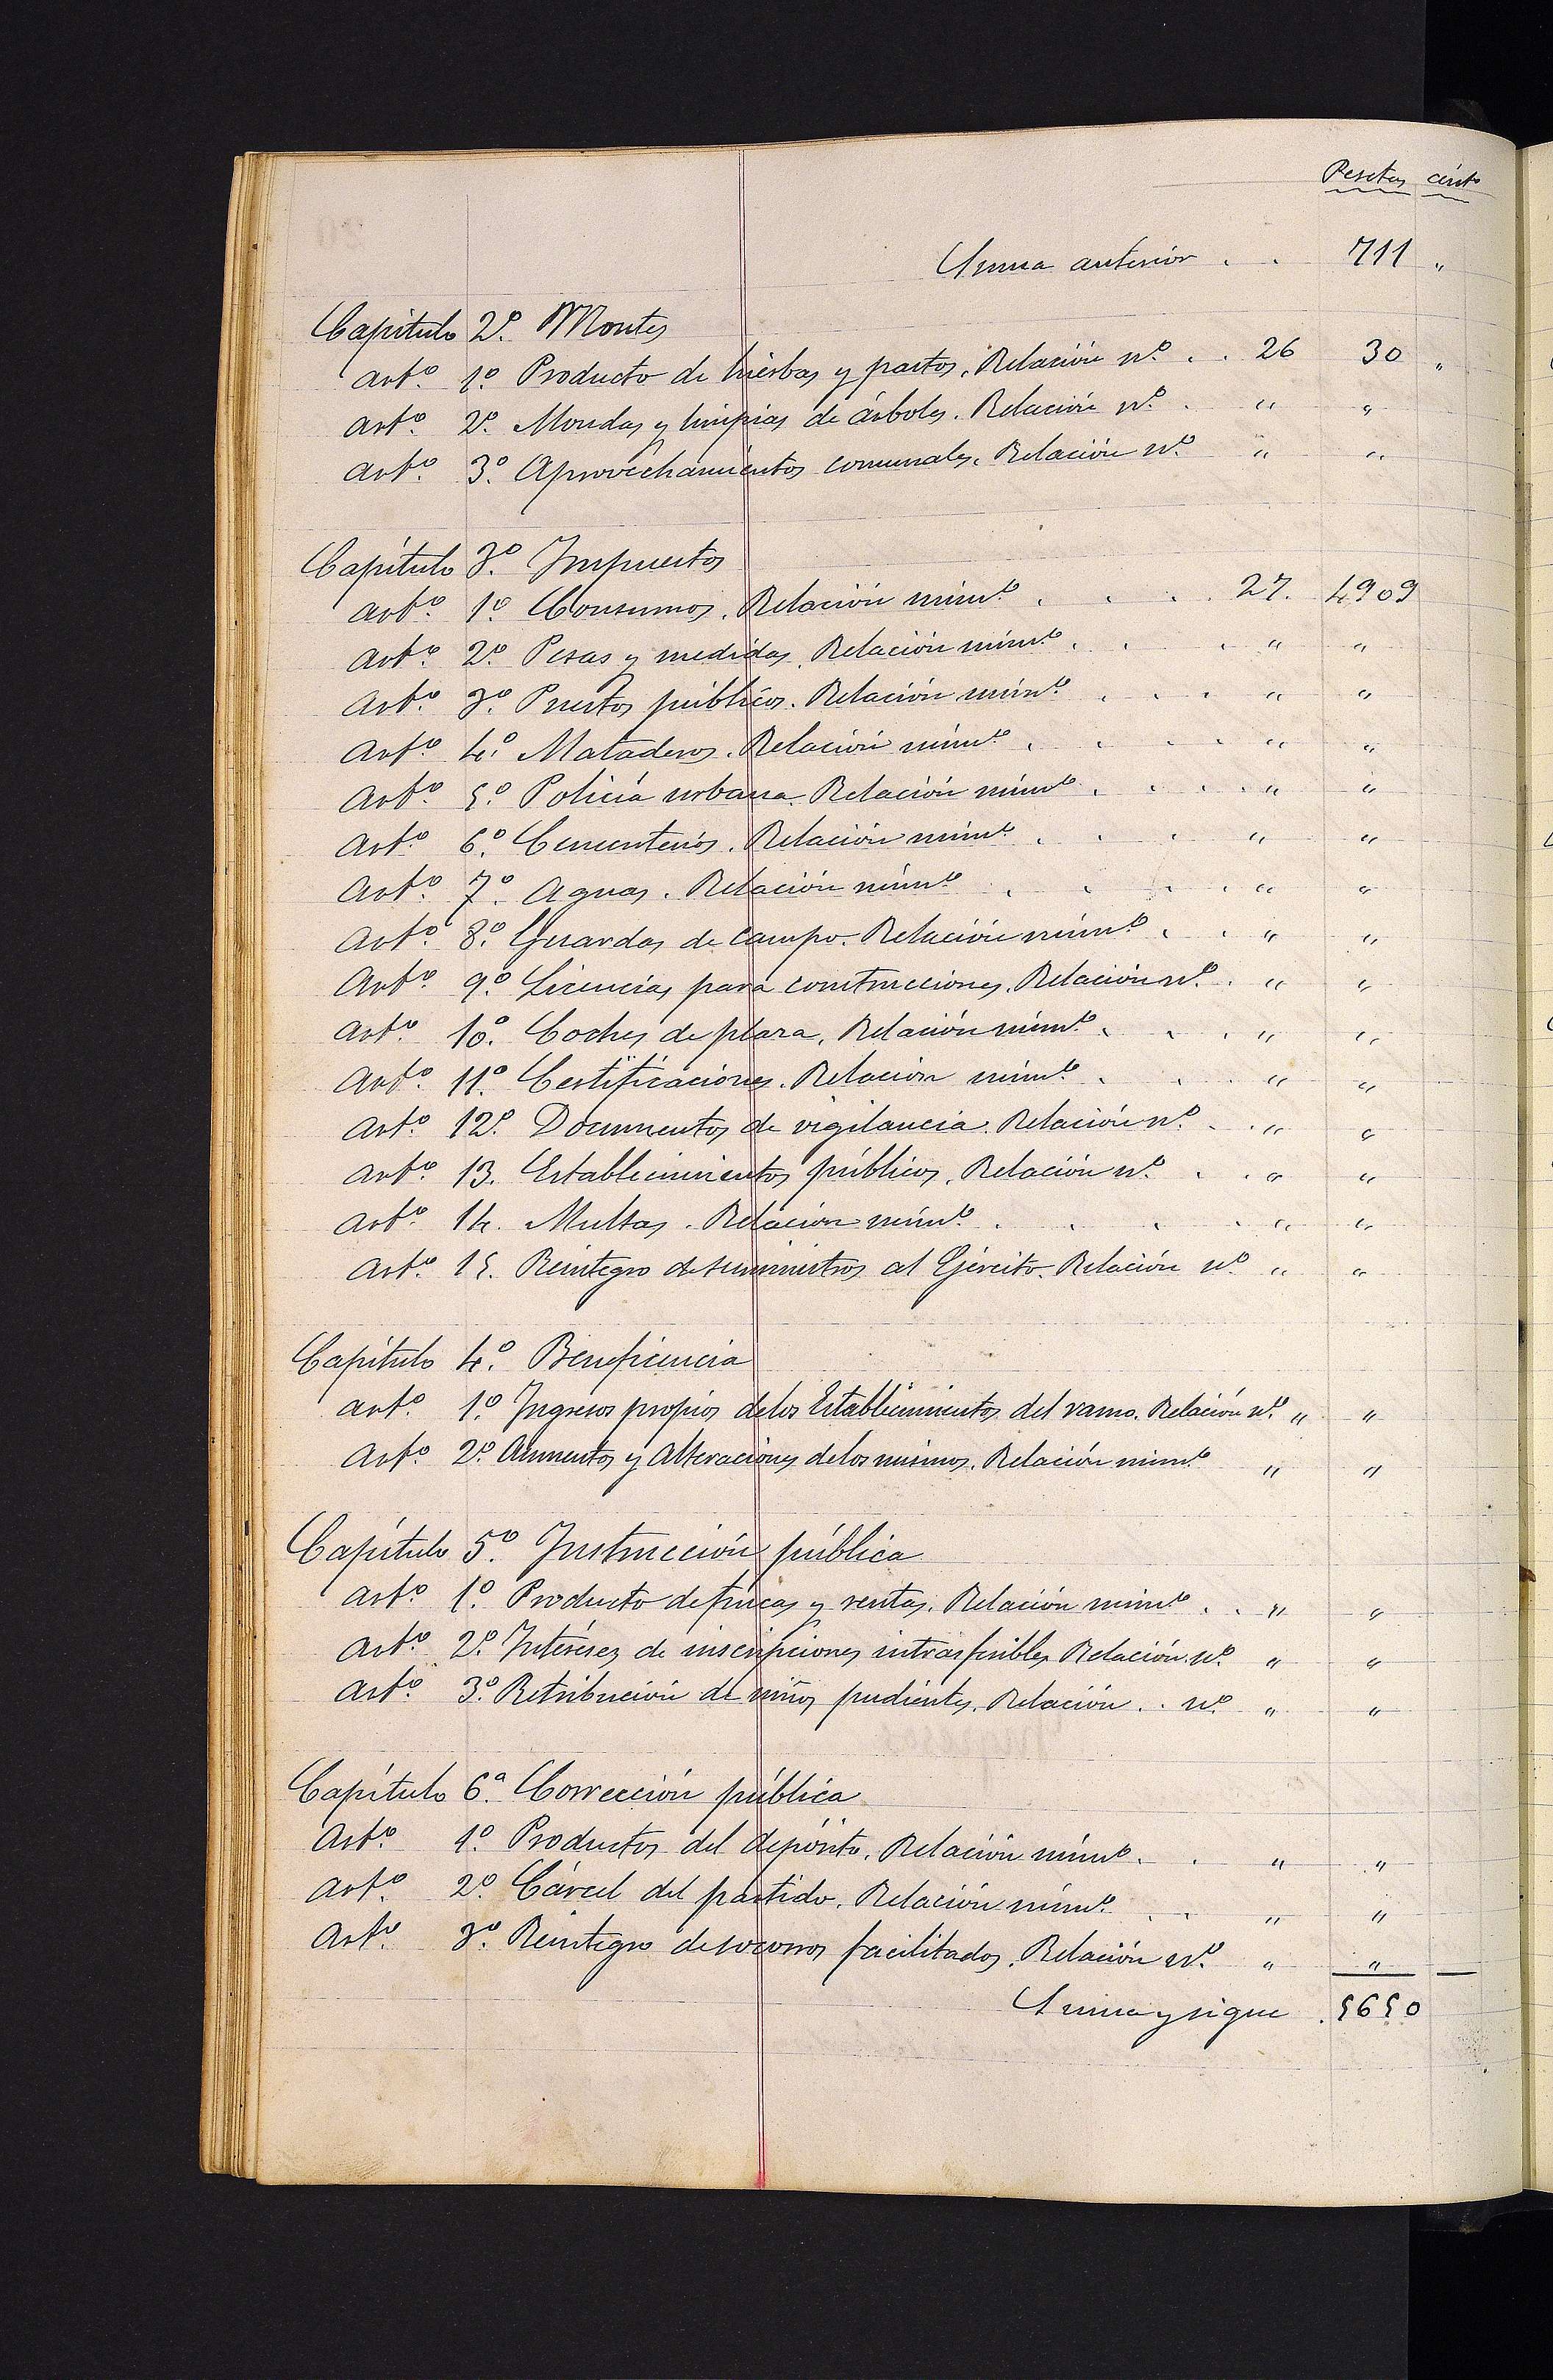 Pesetas cénts
Suma anterior . . 711 "
Capítulo 2º. Montes
Artº. 1º Producto de hierbas y pastos. Relación nº. . . 26 30 "
Artº. 2º. Mondas y limpias de árboles. Relación nº. . " "
Artº. 3º. Aprovechamientos comunales. Relación nº. " "
Capítulo 3º. Impuestos
Artº. 1º Consumos. Relación númº. . . . . 27. 4909
Artº. 2º. Pesas y medidas. Relación númº. . . . " "
Artº. 3º. Puestos públicos. Relación númº. . . . " "
Artº. 4º. Mataderos. Relación númº. . . . . " "
Artº. 5º. Policía urbana. Relación númº. . . . . " "
Artº. 6º. Cementerios. Relación númº. . . . " "
Artº. 7º. Aguas. Relación númº. . . . . " "
Artº. 8º. Guardas de campo. Relación númº. . . " "
Artº. 9º. Licencias para construcciones. Relación nº. . " "
Artº. 10º. Coches de plaza. Relación númº. . . . " "
Artº. 11º. Certificaciones. Relación númº. . . . " "
Artº. 12º. Documentos de vigilancia. Relación nº. . . " "
Artº. 13. Establecimientos públicos. Relación nº. . . " "
Artº. 14. Multas. Relación númº. . . . . " "
Artº. 15. Reintegro de suministros al Ejército. Relación nº. " "
Capítulo 4º. Beneficencia
Artº. 1º. Ingresos propios de los Establecimientos del ramo. Relación nº. " "
Artº. 2º. Aumentos y Alteraciones de los mismos. Relación númº. " "
Capítulo 5º. Instrucción pública
Artº. 1º. Producto de fincas y rentas. Relación númº. . . " "
Artº. 2º. Intereses de inscripciones intrasferibles Relación nº. " "
Artº. 3º. Retribución de niños pudientes. Relación . . nº. " "
Capítulo 6ª. Corrección pública
Artº. 1º. Productos del depósito. Relación númº. . " "
Artº. 2º. Cárcel del partido. Relación númº. . . " "
Artº. 3º. Reintegro de socorros facilitados. Relación nº. " "
Suma y sigue . 5650